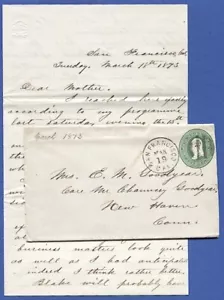 San Francisco, Cal
Tuesday, March 18th 1873
Dear Mother.
I reached here safely
according to my programme
last Saturday evening the 15th
Cal 1873
SAN FRANCISCO
MAR
19
Mrs. E. M. Goodyear,
Care Mr Chauncey Goodyear,
New Haven
Conn.
business matters look quite
as well as I had anticipated
indeed I think rather better.
Blake will probably have